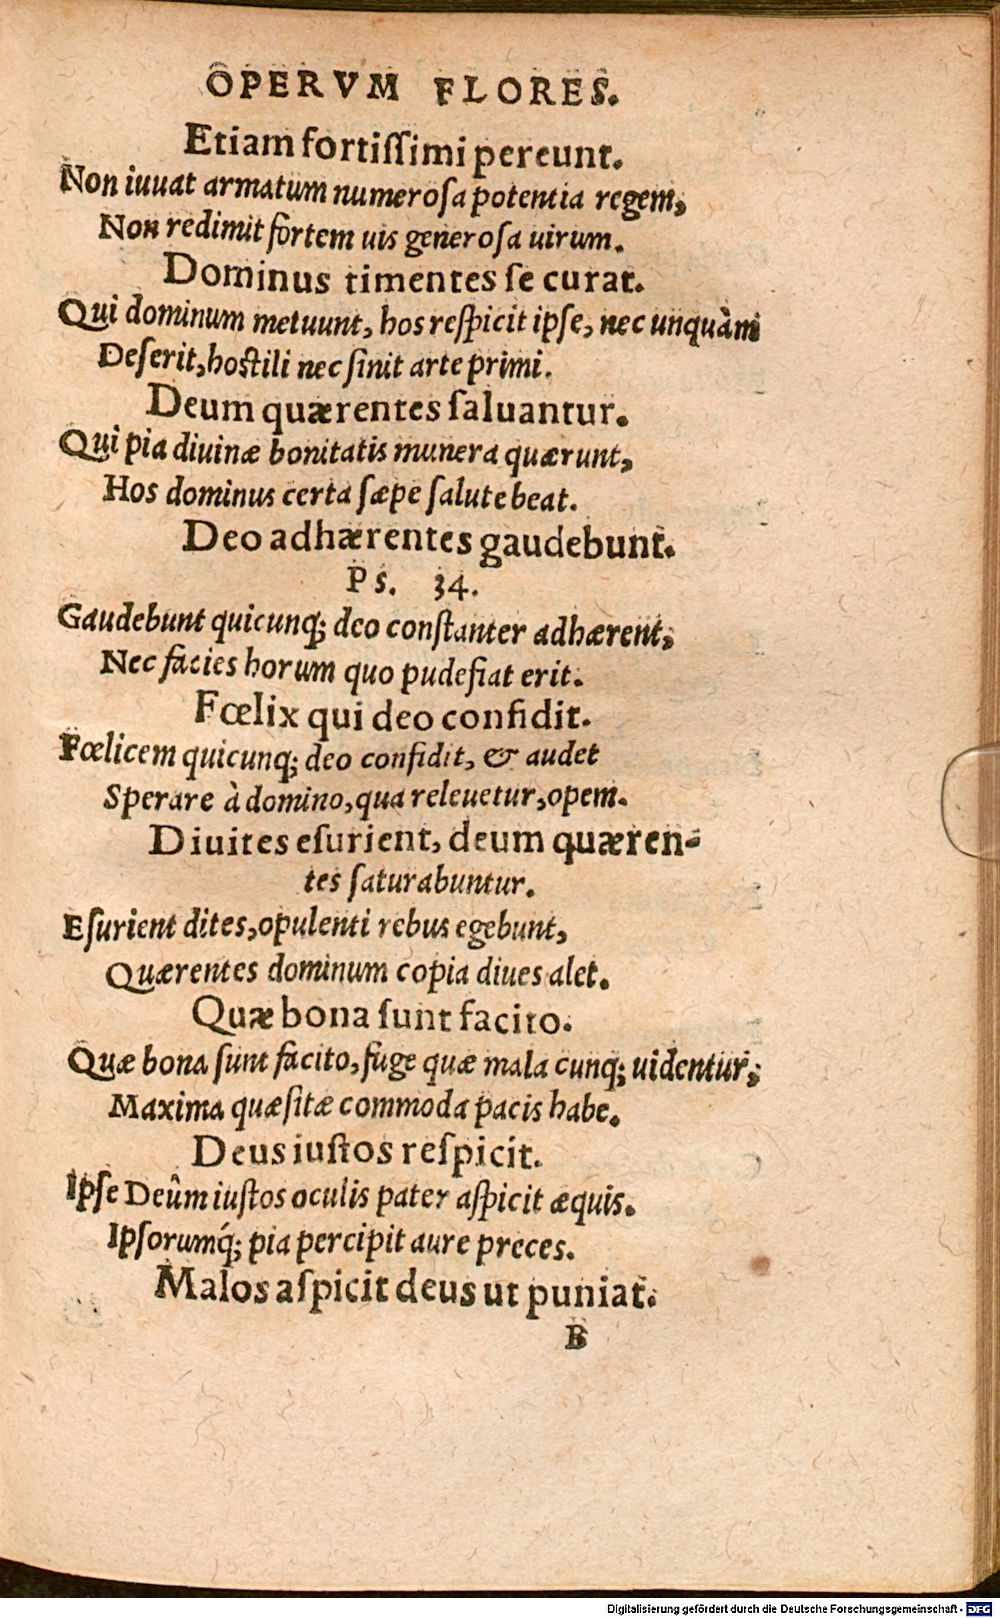 OPERVM FLORES.
Etiam fortiſſimi pereunt.
Non iuuat armatum numeroſa potentia regem,
Non redimit fortem uis generoſa uirum.
Dominus timentes ſe curat.
Qui dominum metuunt, hos reſpicit ipſe, nec unquàm
Deſerit, hoſtili nec ſinit arte primi.
Deum quærentes ſaluantur.
Qui pia diuinæ bonitatis munera quærunt,
Hos dominus certa ſæpe ſalute beat.
Deo adhærentes gaudebunt.
Ps. 34.
Gaudebunt quicunq; deo conſtanter adhærent,
Nec facies horum quo pudefiat erit.
Fœlix qui deo confidit.
Fœlicem quicunq; deo confidit, & audet
Sperare à domino, qua releuetur, opem.
Diuites eſurient, deum quæren-
tes ſaturabuntur.
Eſurient dites, opulenti rebus egebunt,
Quærentes dominum copia diues alet.
Quæ bona ſunt facito.
Quæ bona ſunt facito, fuge quæ mala cunq; uidentur,
Maxima quæſitæ commoda pacis habe.
Deus iuſtos reſpicit.
Ipſe Deûm iuſtos oculis pater aſpicit æquis.
Ipſorumq́; pia percipit aure preces.
Malos aſpicit deus ut puniat.
B
Digitalisierung gefördert durch die Deutsche Forschungsgemeinschaft - DFG